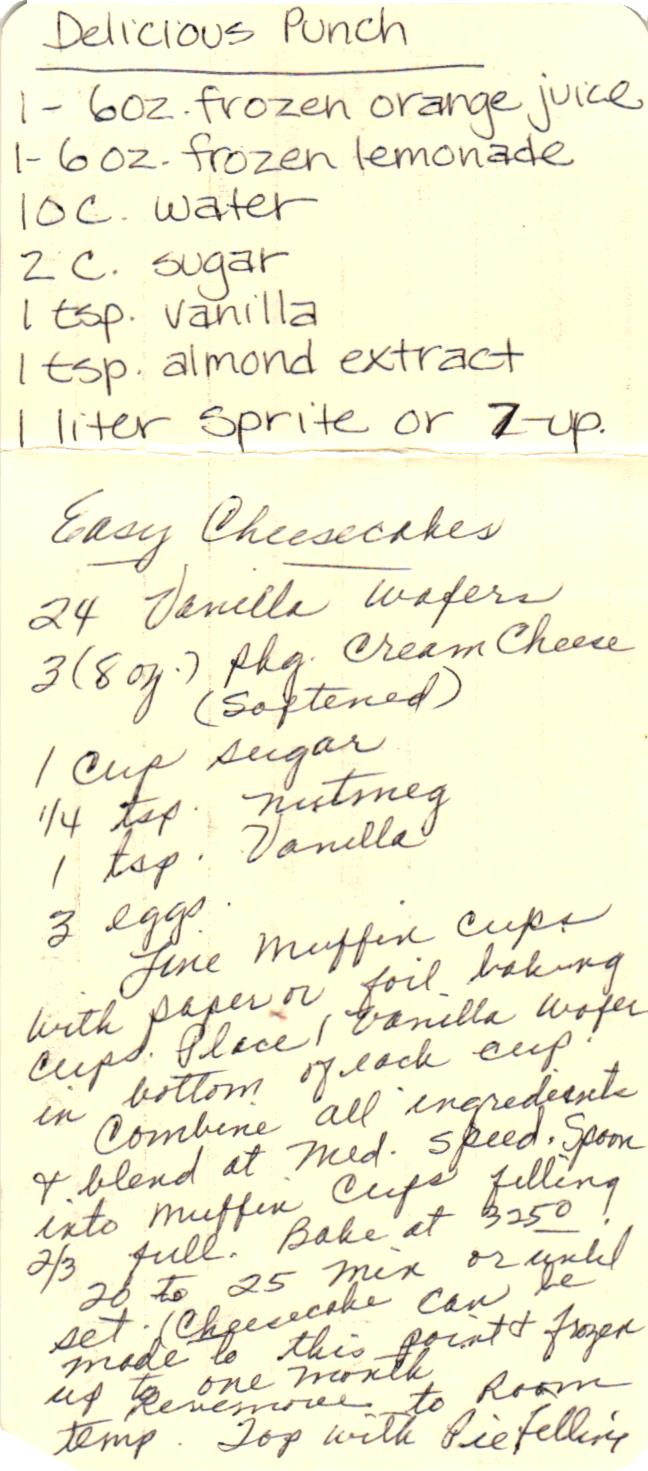 Delicious Punch
1 - 6oz. frozen orange juice
1- 6 oz. frozen lemonade
10 c. water
2 c. sugar
1 tsp. vanilla
1 tsp. almond extract
1 liter sprite or 7-up.
Easy Cheesecakes
24 Vanilla wafers
3 (8 oz.) pkg. Cream Cheese
(Softened)
1 cup sugar
1/4 tsp. nutmeg
1 tsp. Vanilla
3 eggs.
Line Muffin cups
with paper or foil baking
cups. Place 1 Vanilla wafer
in bottom of each cup.
Combine all ingredients
& blend at Med. speed. Spoon
into Muffin Cups filling
2/3 full. Bake at 325°
20 to 25 min or until
set. (Cheesecake can be
made to this point & frozen
up to one month
to Room
temp. Top with Pie filling